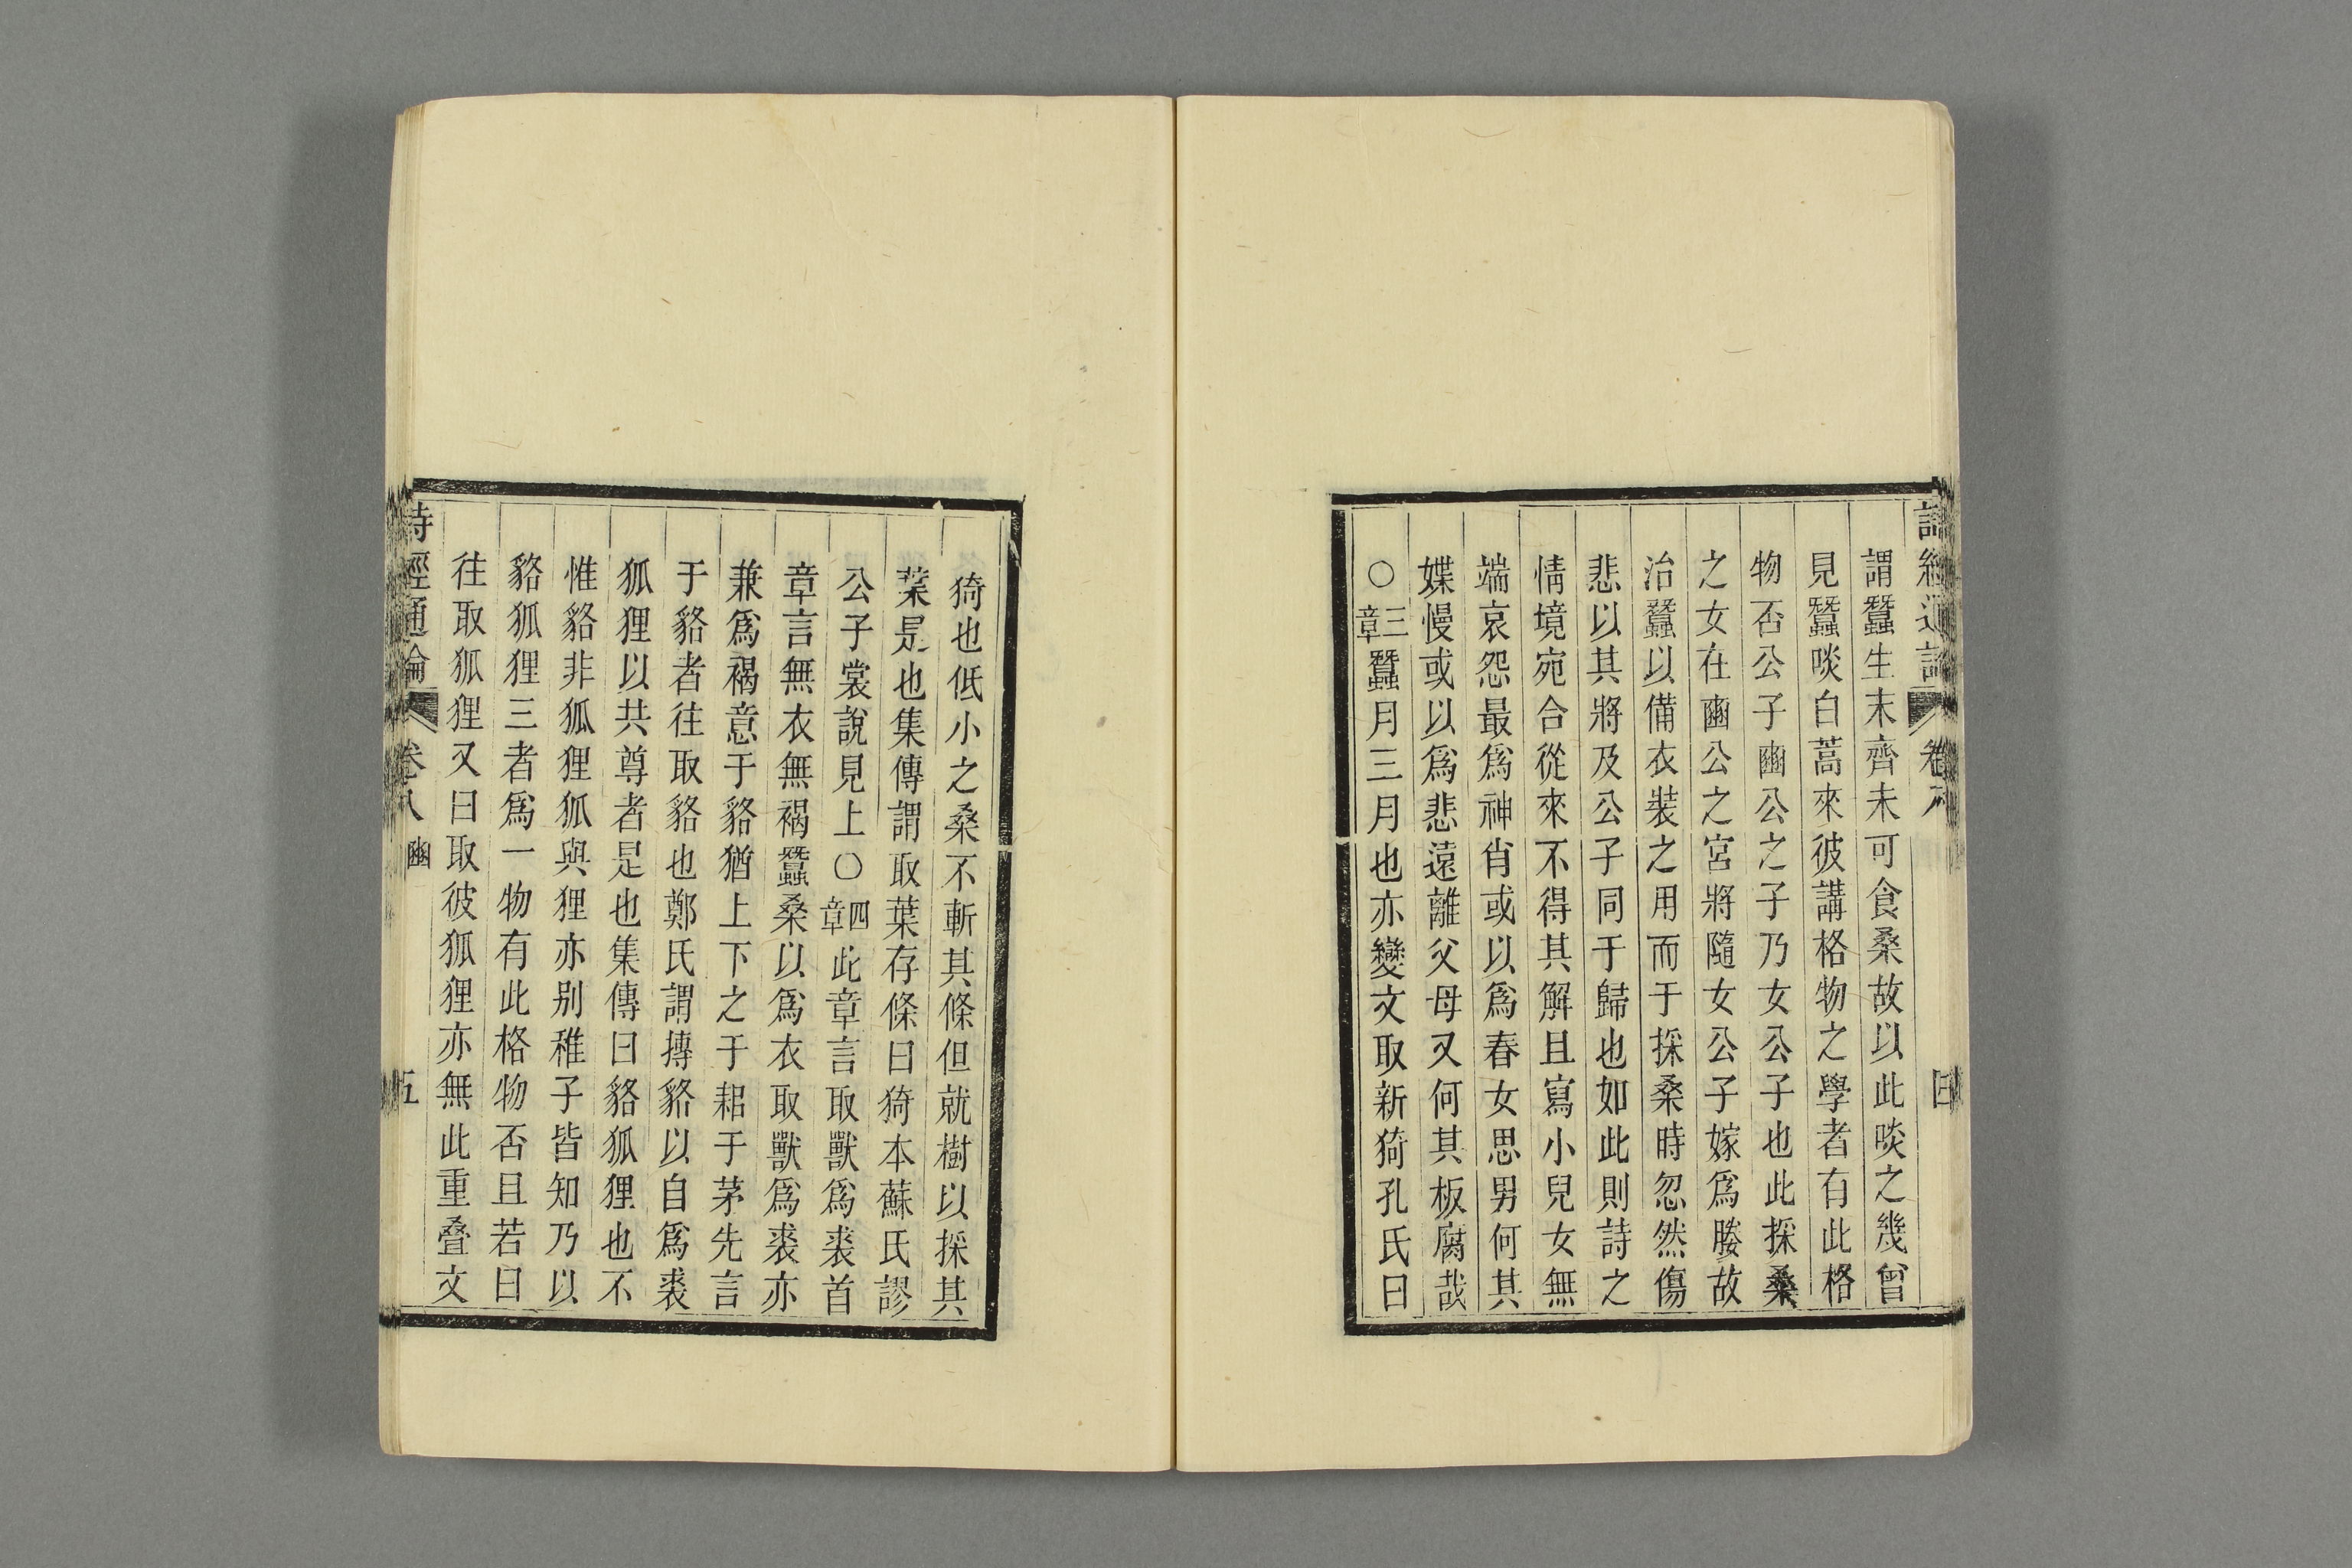 詩經通論 卷八 四
謂蠶生未齊未可食桑故以此啖之幾曾
見蠶啖白蒿來彼講格物之學者有此格
物否公子豳公之子乃女公子也此採桑
之女在豳公之宮將隨女公子嫁爲媵故
治蠶以備衣裝之用而于採桑時忽然傷
悲以其將及公子同于歸也如此則詩之
情境宛合從來不得其解且寫小兒女無
端哀怨最爲神肖或以爲春女思男何其
媟慢或以爲悲遠離父母又何其板腐哉
○三章蠶月三月也亦變文取新猗孔氏曰
猗也低小之桑不斬其條但就樹以採其
葉是也集傳謂取葉存條曰猗本蘇氏謬
公子裳說見上○四章此章言取獸爲裘首
章言無衣無褐蠶桑以爲衣取獸爲裘亦
兼爲褐意于貉猶上下之于耜于茅先言
于貉者往取貉也鄭氏謂摶貉以自爲裘
狐狸以共尊者是也集傳曰貉狐狸也不
惟貉非狐狸狐與狸亦别稚子皆知乃以
貉狐狸三者爲一物有此格物否且若曰
往取狐狸又曰取彼狐狸亦無此重叠文
詩經通論 卷八 豳 五